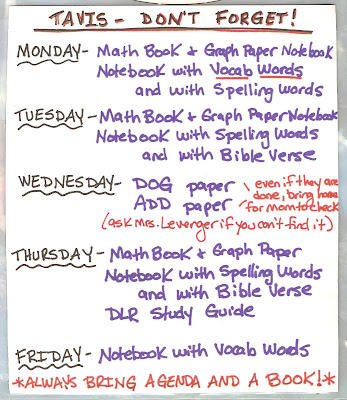 TAVIS - DON'T FORGET!
MONDAY - Math Book + Graph Paper Notebook
Notebook with Vocab Words
and with Spelling Words
TUESDAY - Math Book + Graph Paper Notebook
Notebook with Spelling Words
and with Bible Verse
WEDNESDAY - DOG paper \ even if they are
ADD paper / done, bring home for Mom to check
(ask Mrs. Levenger if you can't find it)
THURSDAY - Math Book + Graph Paper
Notebook with Spelling Words
and with Bible Verse
DLR Study Guide
FRIDAY - Notebook with Vocab Words
*ALWAYS BRING AGENDA AND A BOOK!*